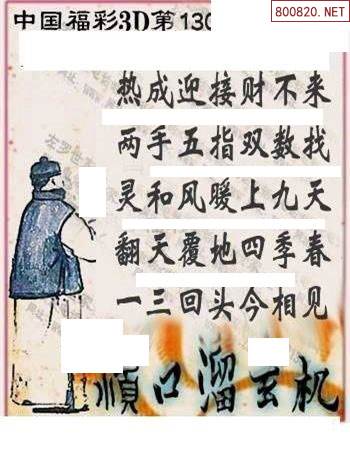 800820.NET
中国福彩3D第130
热成迎接财不来
两手五指双数找
灵和风暖上九天
翻天覆地四季春
一三回头今相见
順口溜玄机